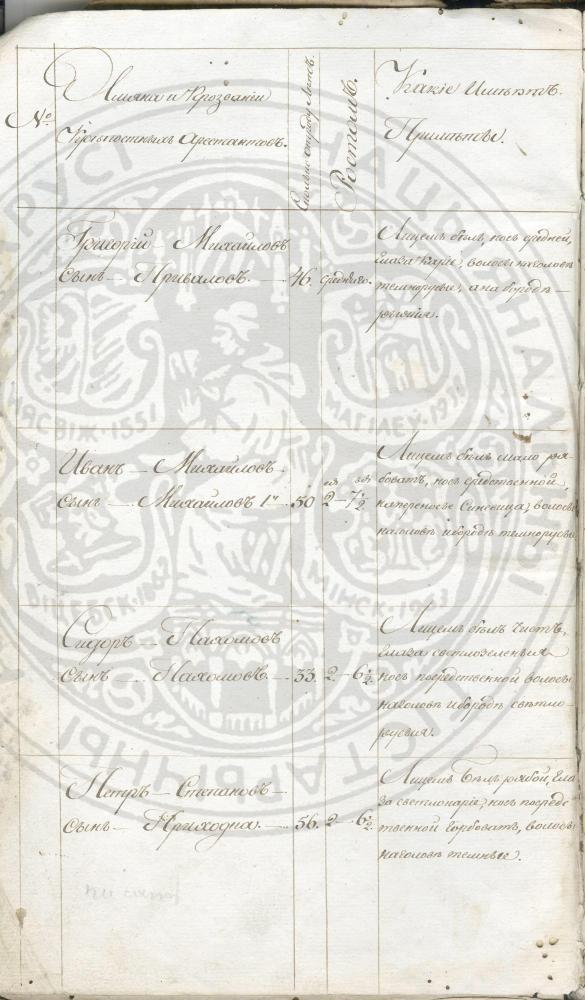 №
Имяна и Прозвании
Крѣпостныхъ Арестантовъ.
Сколько отъ роду Летъ.
Ростомъ.
Какіе Имѣютъ
Примѣты.
Григорій — Михайловъ
сынъ — Приваловъ. — 46. средняго.
Лицемъ бѣлъ, носъ средней,
глаза карие, волосы наголовѣ
темнорусые, а на бородѣ —
рыжия.
Иванъ — Михайловъ —
сынъ — Михайловъ 1й 50 2 — 7½
Лицемъ бѣлъ мало ря-
боватъ, носъ средственной,
напереносье Синеица, волосы
наголовѣ ибородѣ темнорусые
Сидоръ — Пахомовъ
сынъ — Пахомовъ. — 33. 2 — 6½
Лицемъ бѣлъ чистъ,
глаза светлозеленыя
носъ посредственной волосы
наголовѣ ибородѣ свѣтло-
русыя.
Петръ — Степановъ —
сынъ — Приходна. — 56. 2 — 6½
Лицемъ Бѣлъ рябой, Гла
за светлокарія, носъ посредс
твенной Горбоватъ, волосы
наголовѣ темные.
НАЦЫЯНАЛЬНЫ
ГІСТАРЫЧНЫ
БЕЛАРУСІ
НЯСВІЖ·1551
МАГІЛЕЎ·19
ВІЦЕБСК·1863
МІНСК·19